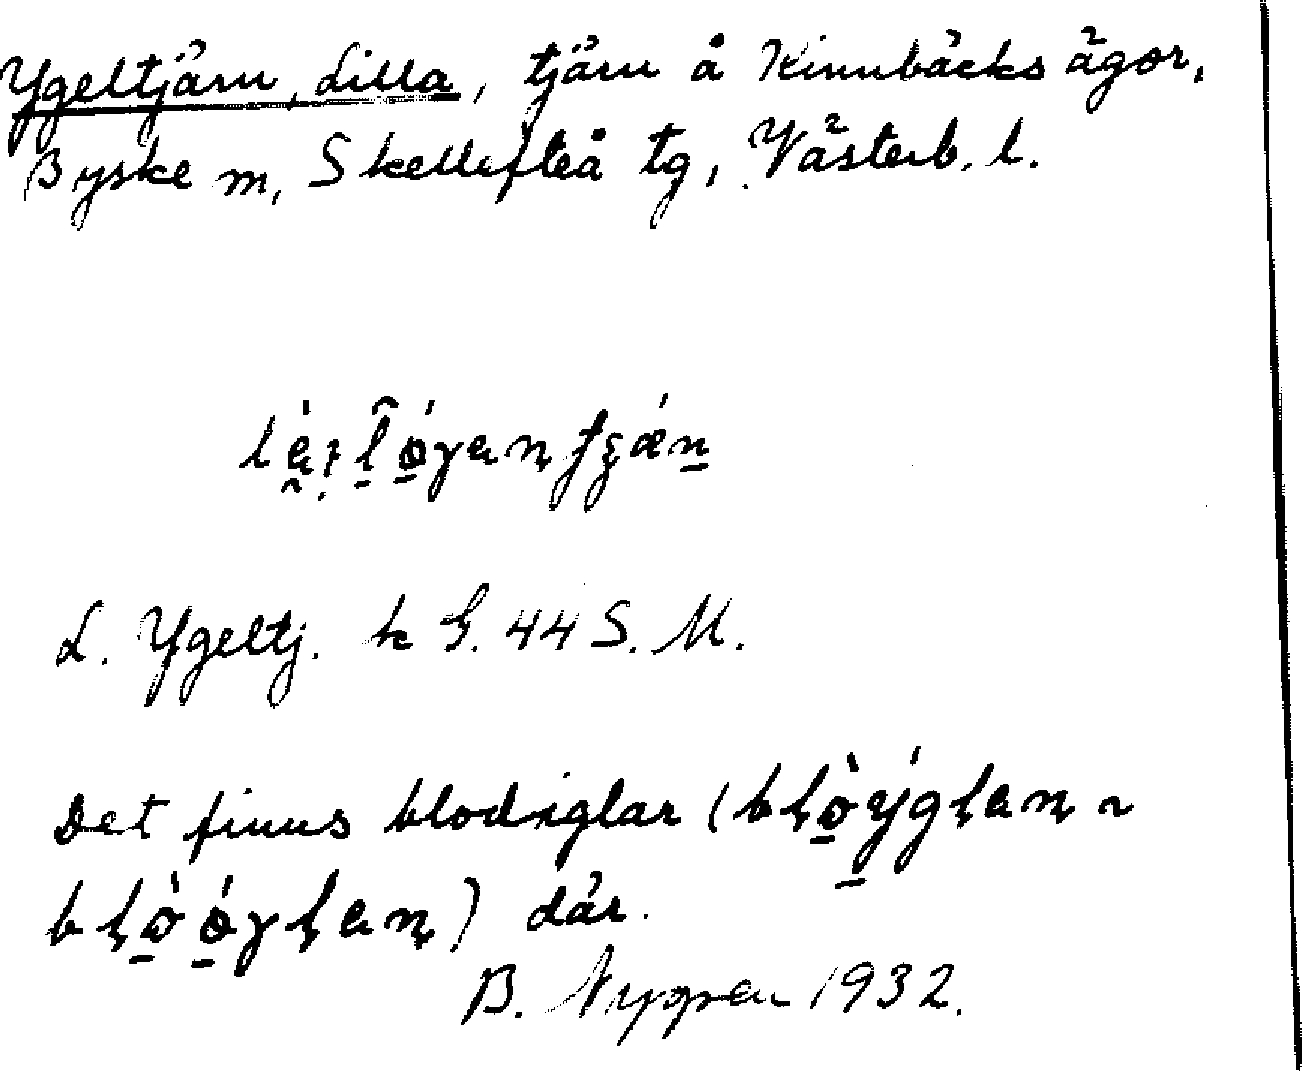 Ygeltjärn, Lilla, tjärn å Kinnbäcks ägor,
Byske sn, Skellefteå tg, Västerb. l.
L. Ygeltj. k G. 44 S. M.
Det finns blodiglar (
) där.
B. Nygren 1932.